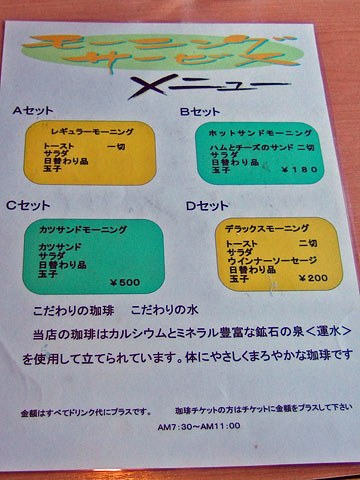 モーニング
サービス
メニュー
Aセット
レギュラーモーニング
トースト 一切
サラダ
日替わり品
玉子
Bセット
ホットサンドモーニング
ハムとチーズのサンド 二切
サラダ
日替わり品
玉子 ￥180
Cセット
カツサンドモーニング
カツサンド
サラダ
日替わり品
玉子 ￥500
Dセット
デラックスモーニング
トースト 二切
サラダ
ウインナーソーセージ
日替わり品
玉子 ￥200
こだわりの珈琲 こだわりの水
当店の珈琲はカルシウムとミネラル豊富な鉱石の泉＜運水＞
を使用して立てられています。体にやさしくまろやかな珈琲です
金額はすべてドリンク代にプラスです。 珈琲チケットの方はチケットに金額をプラスして下さい
AM7:30～AM11:00